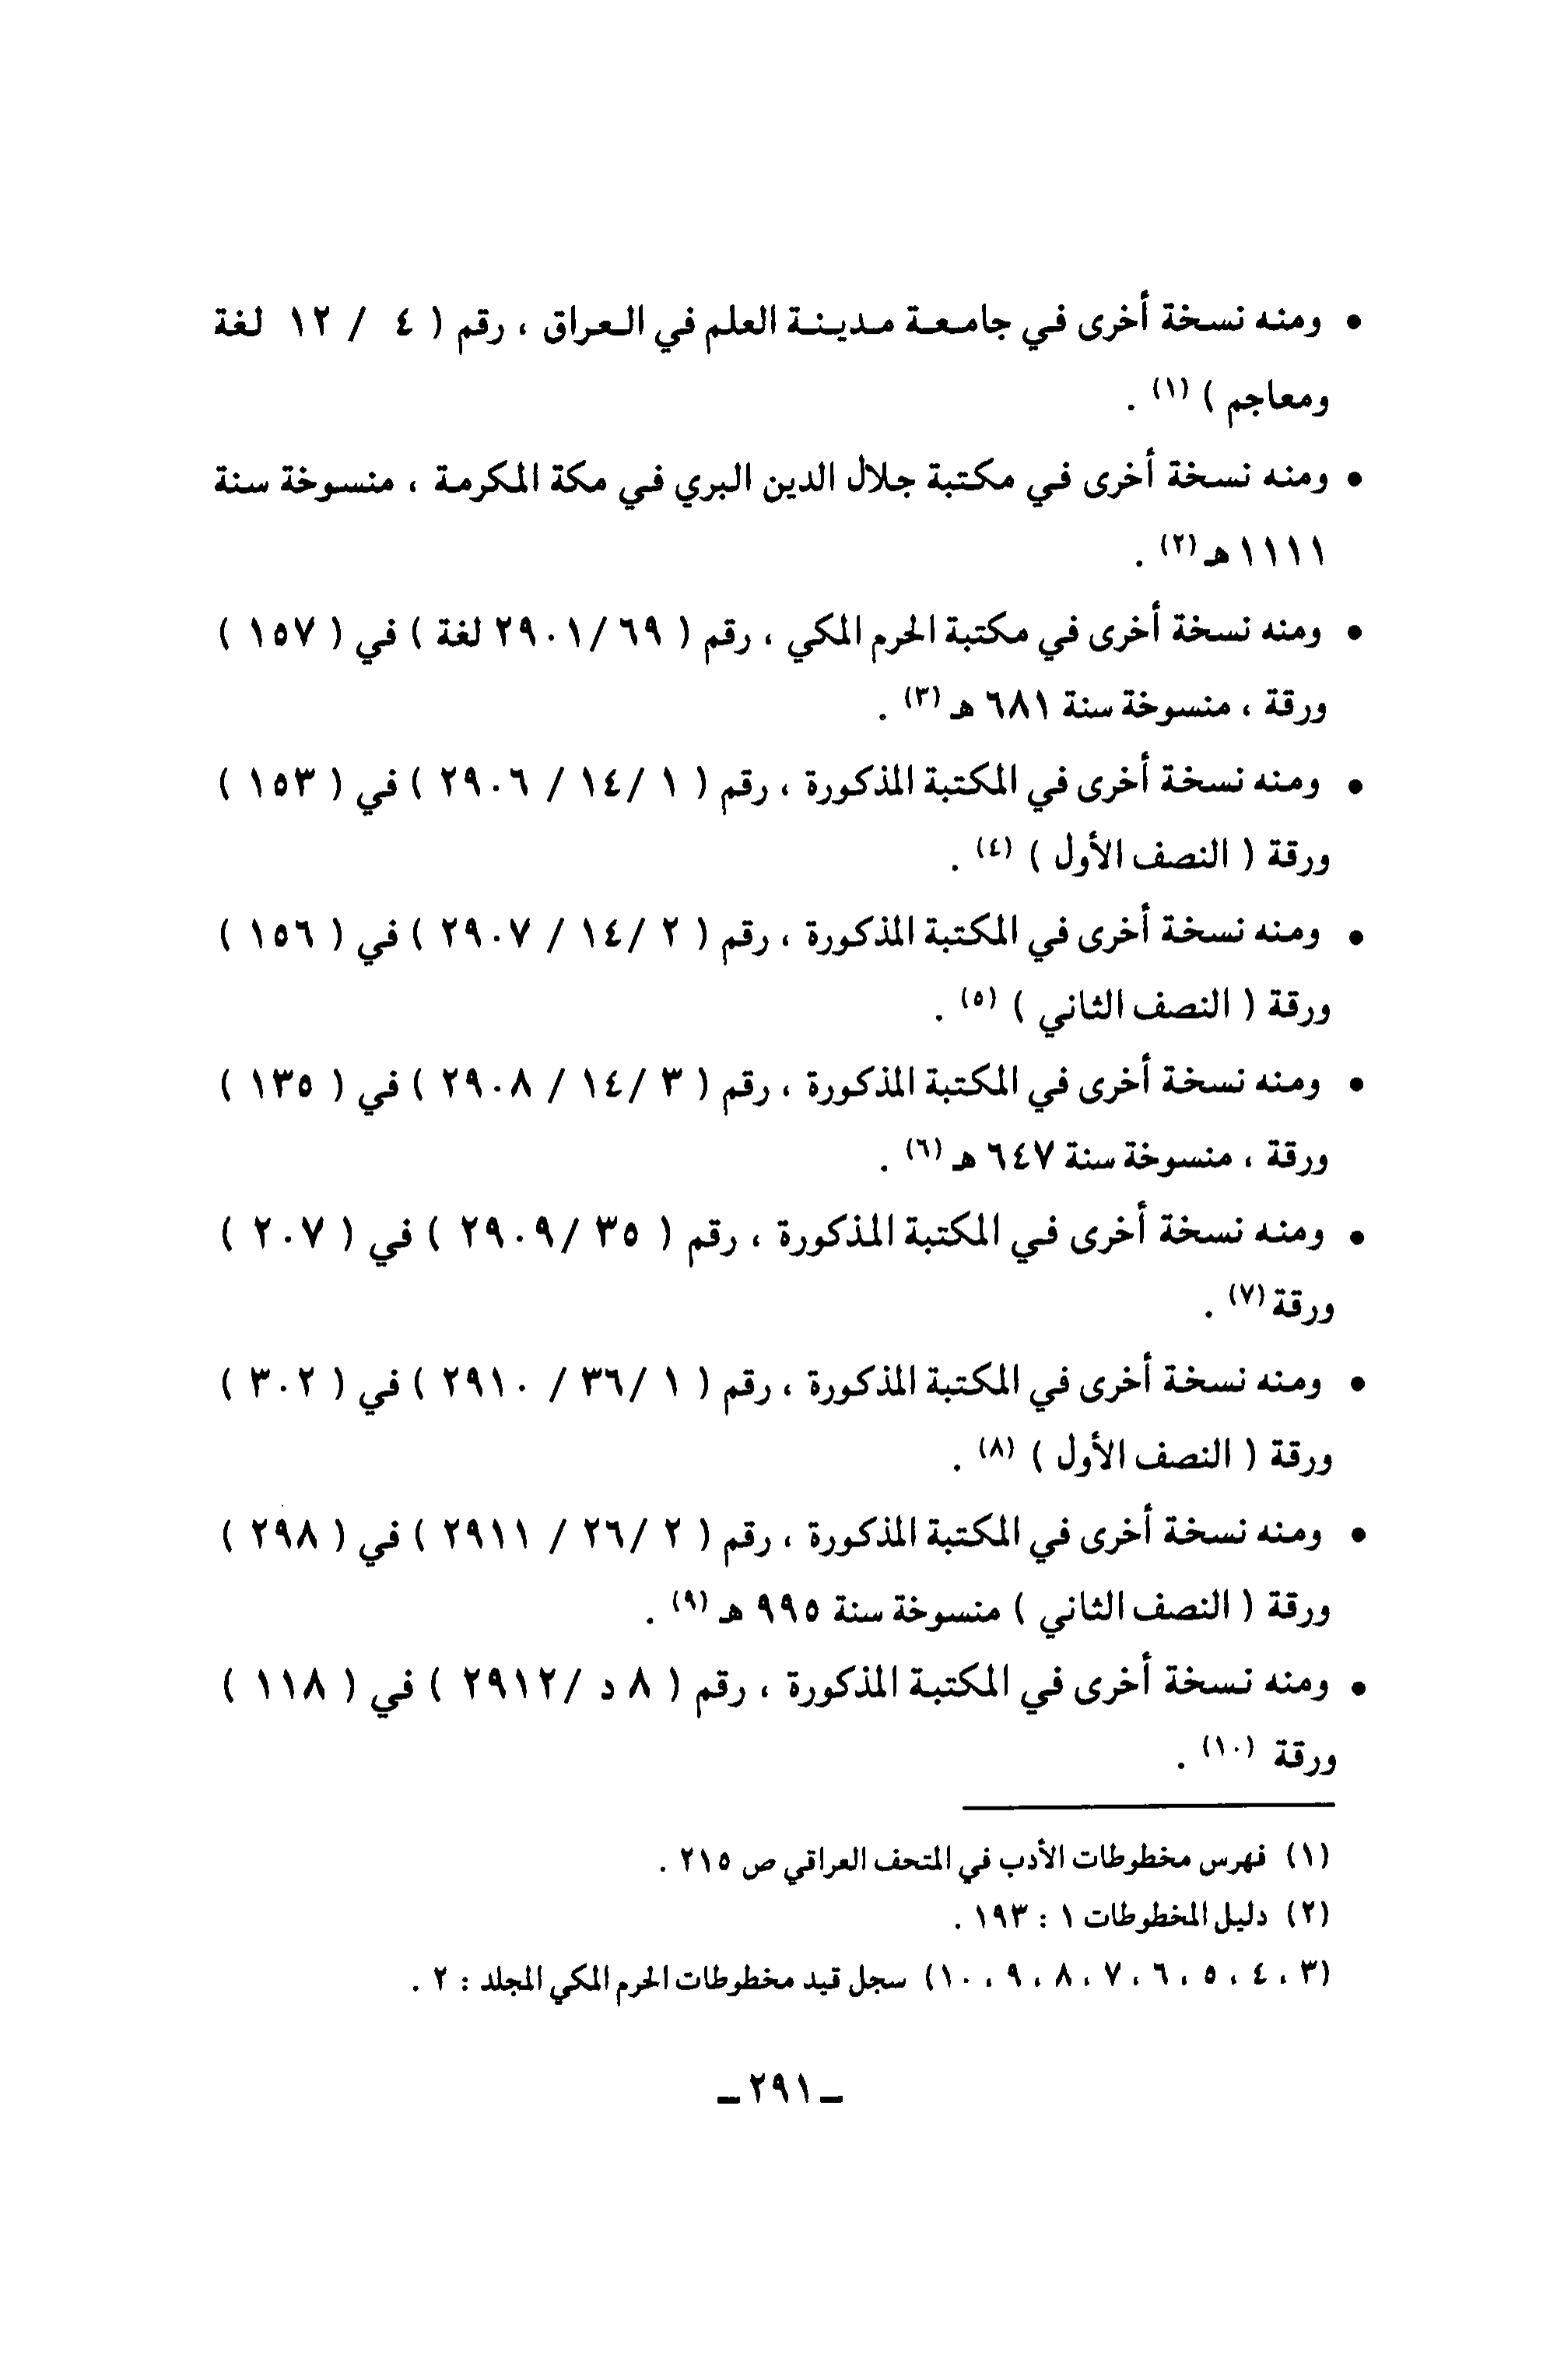 • ومنه نسخة أخرى في جامعة مدينة العلم في العراق ، رقم ( ٤ / ١٢ لغة
ومعاجم ) (١) .
• ومنه نسخة أخرى في مكتبة جلال الدين البري في مكة المكرمة ، منسوخة سنة
١١١١هـ (٢) .
• ومنه نسخة أخرى في مكتبة الحرم المكي ، رقم ( ٢٩٠١/٦٩ لغة ) في ( ١٥٧ )
ورقة ، منسوخة سنة ٦٨١ هـ (٣) .
• ومنه نسخة أخرى في المكتبة المذكورة ، رقم ( ١ /١٤ / ٢٩٠٦ ) في ( ١٥٣ )
ورقة ( النصف الأول ) (٤) .
• ومنه نسخة أخرى في المكتبة المذكورة ، رقم ( ٢ /١٤ / ٢٩٠٧ ) في ( ١٥٦ )
ورقة ( النصف الثاني ) (٥) .
• ومنه نسخة أخرى في المكتبة المذكورة ، رقم ( ٣ /١٤ / ٢٩٠٨ ) في ( ١٣٥ )
ورقة ، منسوخة سنة ٦٤٧ هـ (٦) .
• ومنه نسخة أخرى في المكتبة المذكورة ، رقم ( ٣٥ /٢٩٠٩ ) في ( ٢٠٧ )
ورقة (٧) .
• ومنه نسخة أخرى في المكتبة المذكورة ، رقم ( ١ /٣٦ / ٢٩١٠ ) في ( ٣٠٢ )
ورقة ( النصف الأول ) (٨) .
• ومنه نسخة أخرى في المكتبة المذكورة ، رقم ( ٢ /٢٦ / ٢٩١١ ) في ( ٢٩٨ )
ورقة ( النصف الثاني ) منسوخة سنة ٩٩٥ هـ (٩) .
• ومنه نسخة أخرى في المكتبة المذكورة ، رقم ( ٨ د /٢٩١٢ ) في ( ١١٨ )
ورقة (١٠) .
(١) فهرس مخطوطات الأدب في المتحف العراقي ص ٢١٥ .
(٢) دليل المخطوطات ١ : ١٩٣ .
(٣ ، ٤ ، ٥ ، ٦ ، ٧ ، ٨ ، ٩ ، ١٠) سجل قيد مخطوطات الحرم المكي المجلد : ٢ .
ـ ٢٩١ ـ